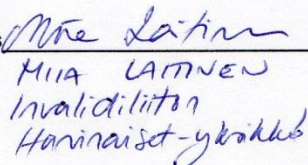 Miia Laitinen
MIIA LAITINEN
Invalidiliiton
Harvinaiset-yksikkö